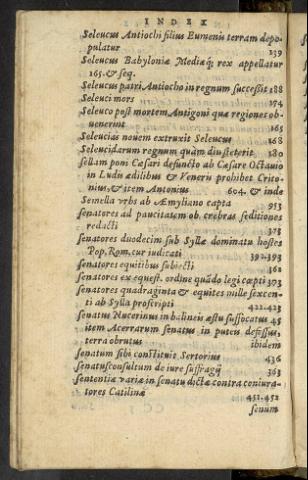 INDEX
Seleucus Antiochi filius Eumenis terram depo-
pulatur 239
Seleucus Babyloniæ Mediæq; rex appellatur
165.& seq.
Seleucus patri Antiocho in regnum successit 188
Seleuci mors 174
Seleuco post mortem Antigoni quæ regiones ob-
uenerint 165
Seleucias nouem extruxit Seleucus 168
Seleucidarum regnum quàm diu steterit 180
sellam poni Cæsari defuncto ab Cæsare Octauio
in Ludis ædilibus & Veneris prohibet Crito-
nius, & item Antonius 604. & inde
Semella vrbs ab Æmyliano capta 953
senatores ad paucitatem ob crebras seditiones
redacti 373
senatores duodecim sub Syllæ dominatu hostes
Pop. Rom. cur iudicati 392.393
senatores equitibus subiecti 361
senatores ex equest. ordine quãdo legi cœpti 373
senatores quadraginta & equites mille sexcen-
ti ab Sylla proscripti 422.423
senatus Nucerinus in balineis æstu suffocatus 45
item Acerrarum senatus in puteis defossus,
terra obrutus ibidem
senatum sibi constituit Sertorius 436
senatusconsultum de iure suffragij 363
sententiæ variæ in senatu dictæ contra coniura-
tores Catilinæ 451.452
senum